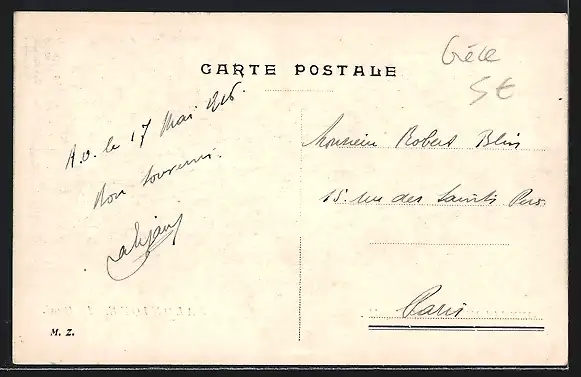 Grèce
5€
CARTE POSTALE
A.O. le 17 Mai 1916.
Bon souvenir.
Monsieur Robert Blin
15. rue des Saints Pères.
Paris
M. Z.